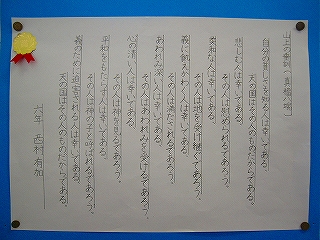 山上の垂訓（真福八端）
自分の貧しさを知る人は幸いである。
天の国はその人のものだからである。
悲しむ人は幸いである。
その人は慰められるであろう。
柔和な人は幸いである。
その人は地を受け継ぐであろう。
義に飢えかわく人は幸いである。
その人は満たされるであろう。
あわれみ深い人は幸いである。
その人はあわれみを受けるであろう。
心の清い人は幸いである。
その人は神を見るであろう。
平和をもたらす人は幸いである。
その人は神の子と呼ばれるであろう。
義のために迫害される人は幸いである。
天の国はその人のものだからである。
六年 西村有加